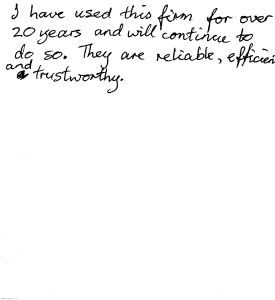 I have used this firm for over
20 years and will continue to
do so. They are reliable, efficien
and trustworthy.